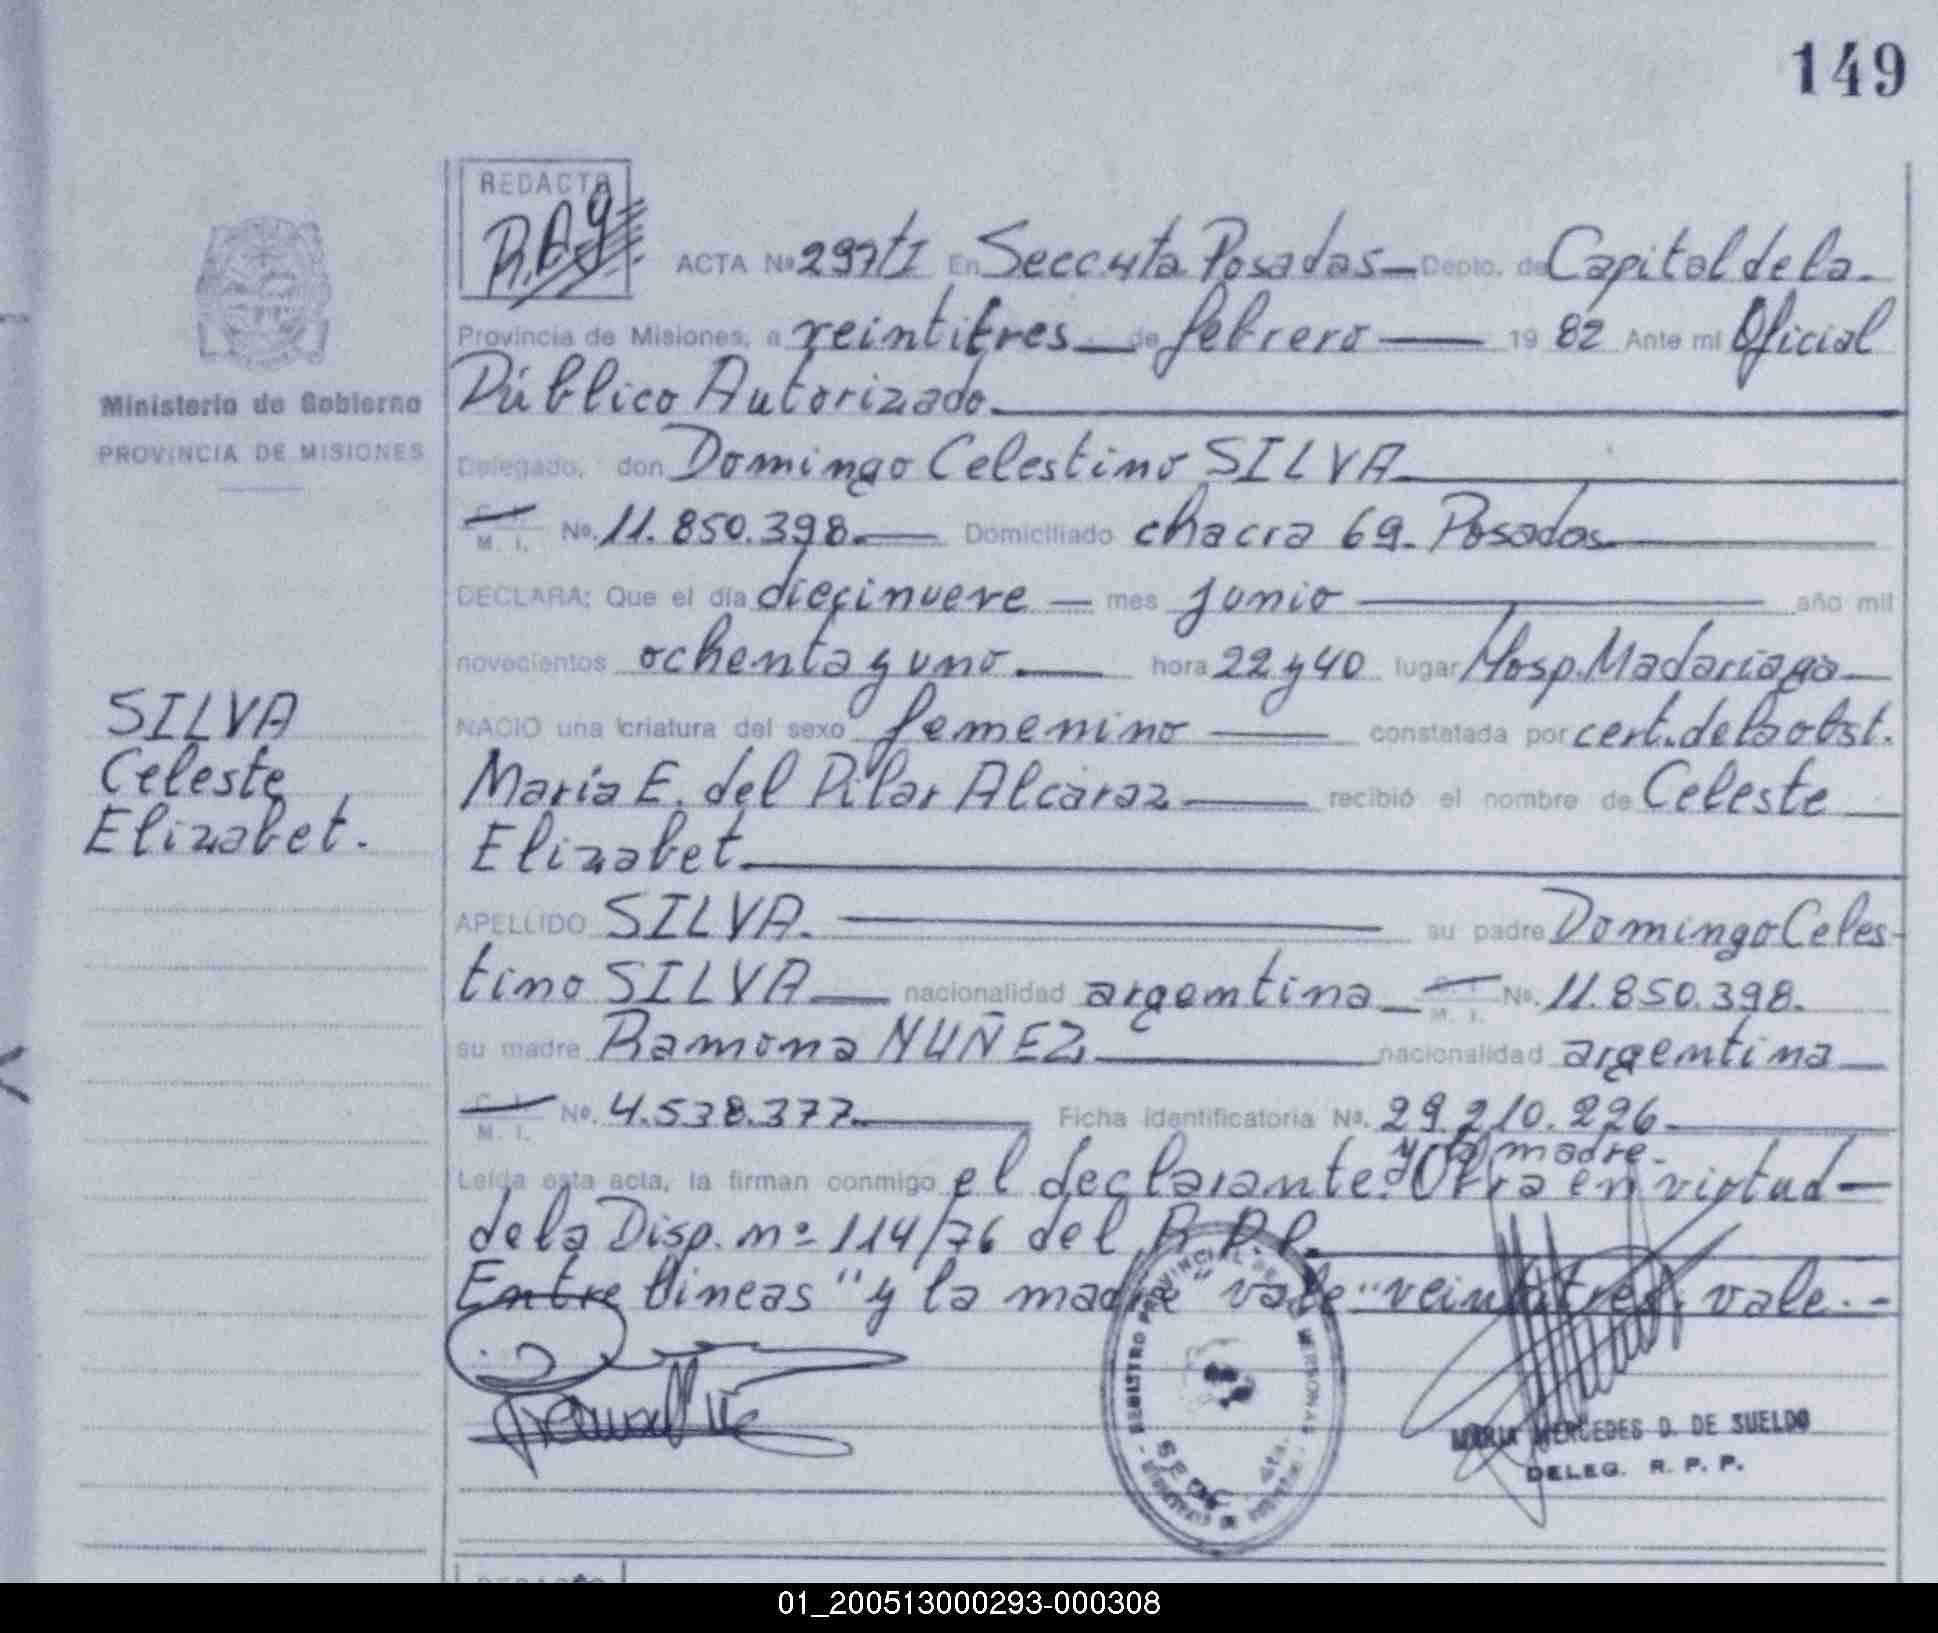 149
REDACTO
ACTA No 297 tI En Secc 4ta Posadas Depto. de Capital de la
Provincia de Misiones, a veintitres de febrero 19 82 Ante mi Oficial
Público Autorizado.
Delegado, don Domingo Celestino SILVA
C. I. M. I. No. 11.850.398. Domiciliado chacra 69. Posadas
DECLARA: Que el día diecinueve mes junio año mil
novecientos ochenta y uno hora 22 y 40 lugar Hosp. Madariaga
NACIO una criatura del sexo femenino constatada por cert. de la obst.
María E. del Pilar Alcaraz recibió el nombre de Celeste
Elizabet
APELLIDO SILVA. su padre Domingo Celes-
tino SILVA nacionalidad argentina C. I. M. I. No. 11.850.398.
su madre Ramona NUÑEZ nacionalidad argentina
C. I. M. I. No. 4.538.377. Ficha identificatoria No. 29.210.226.
y la madre.
Leída esta acta, la firman conmigo el declarante. Otra en virtud
de la Disp. nº 114/76 del R.P.P.
Entre lineas "y la madre" vale "veintitres" vale.-
Ministerio de Gobierno
PROVINCIA DE MISIONES
SILVA
Celeste
Elizabet.
REGISTRO PROVINCIAL DE LAS PERSONAS
SECC. 4ta.
MARIA MERCEDES D. DE SUELDO
DELEG. R. P. P.
01_200513000293-000308